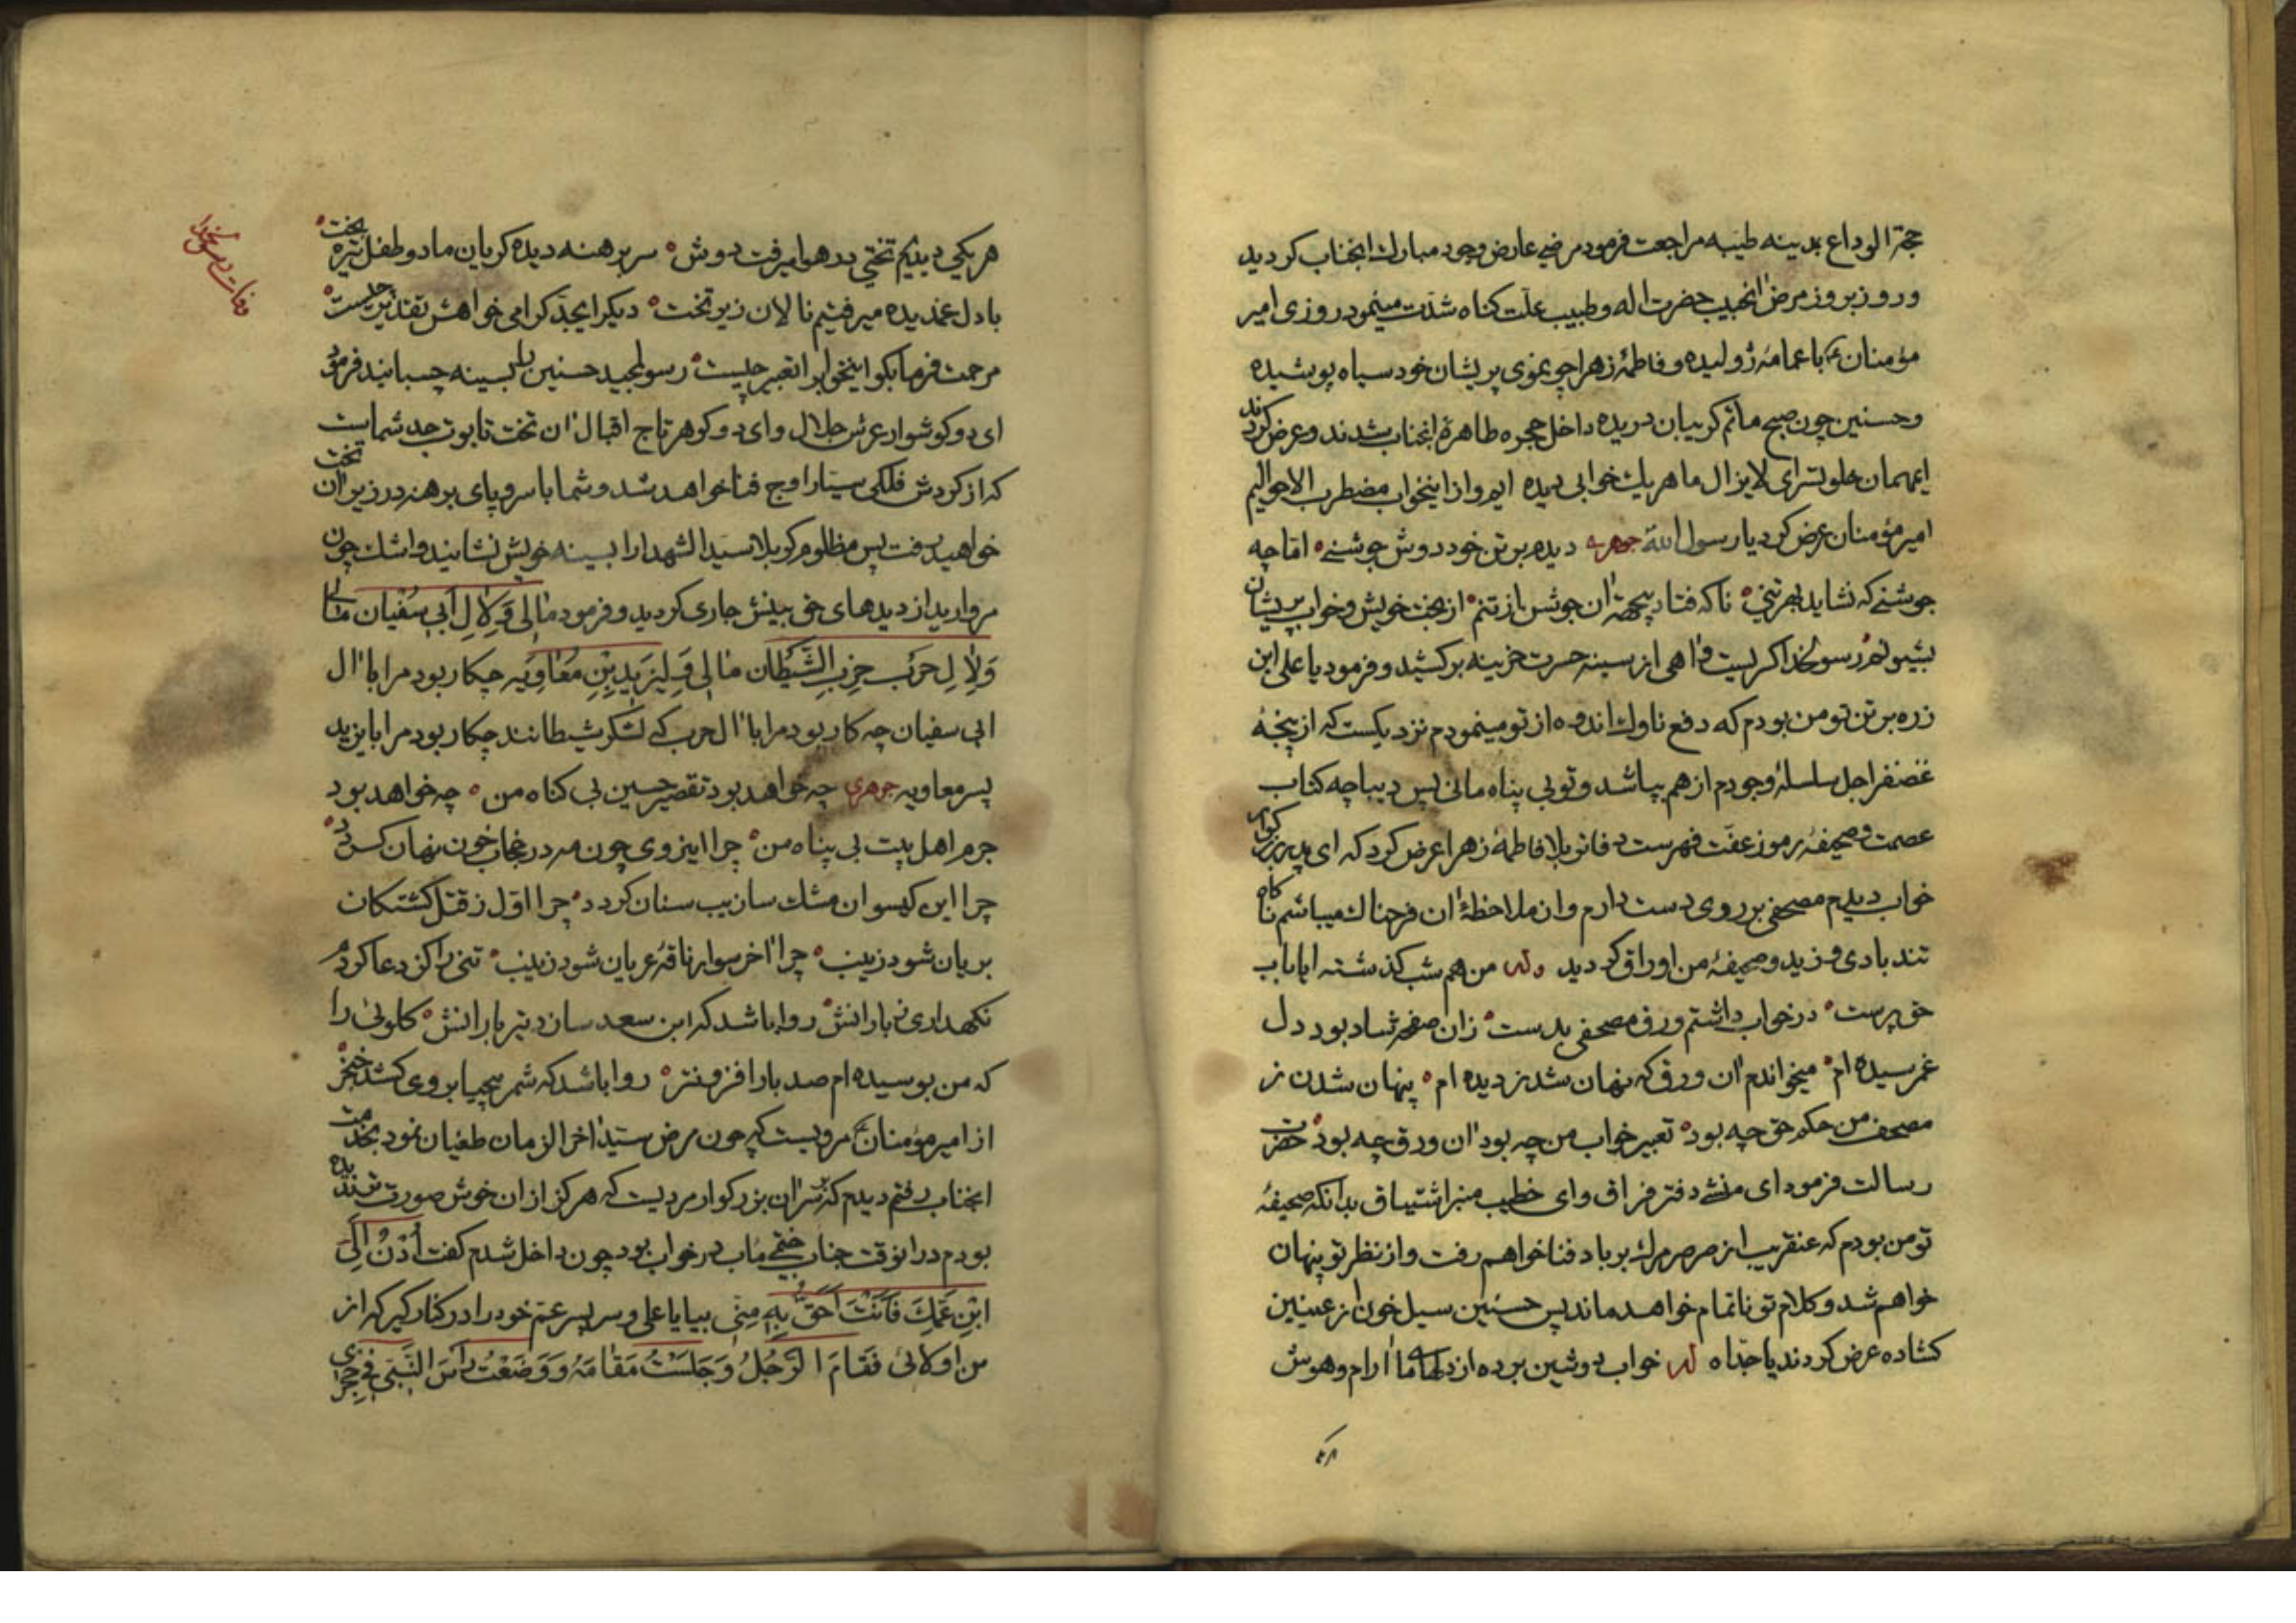 حجة الوداع بمدینه طیبه مراجعت فرمود مرضی عارض وجود مبارك انجناب کردید
و روز بروز مرض انحبیب حضرت اله و طبیب علت کناه شدت مینمود روزی امیر
مؤمنان ع با عمامۀ ژولیده و فاطمۀ زهرا چو موی پریشان خود سیاه پوشیده
و حسنین چون صبح ماتم کریبان دریده داخل حجره طاهرۀ انجناب شدند و عرض کردند
ایمهمان خلوتسرای لایزال ما هریك خوابی دیده ایم و از اینخواب مضطرب الاحوالیم
امیر مؤمنان عرض کرد یا رسول الله جوهریه دیدم برتن خود دوش جوشنی اما چه
جوشنی که نشاید بهر تنی ناکه فتاد ان جوشن از تنم از بخت خویش و خواب پریشان
رسولخدا کریست و اهی از سینه حسرت خزینه برکشید و فرمود یا علی این
زره بر تن تو من بودم که دفع ناوك اندوه از تو مینمودم نزدیکست که از پنجۀ
غضنفر اجل سلسلۀ وجودم از هم بپاشد و تو بی پناه مانی پس دیباچه کتاب
عصمت و صحیفۀ رموز عفت فهرست فاطمۀ زهرا عرض کرد که ای پدر بزرکوار
خواب دیدم مصحفی بر روی دست دارم و از ملاحظۀ ان فرحناك میباشم ناکاه
تند بادی وزید و صحیفۀ من اوراق کردید وله من هم شب کذشته ایا باب
حق پرست در خواب داشتم ورق مصحفی بدست زان صفحه شاد بود دل
غمرسیده ام میخواندم ان ورق که نهان شد ز دیده ام پنهان شدن ز
مصحف من حکم حق چه بود تعبیر خواب من چه بود ان ورق چه بود حضرت
رسالت فرمود ای منشی دفتر فراق و ای خطیب منبر اشتیاق بدانکه صحیفۀ
تو من بودم که عنقریب از صرصر مرك برباد فنا خواهم رفت و از نظر تو پنهان
خواهم شد و کلام تو ناتمام خواهد ماند پس حسنین سیل خون از عینین
کشاده عرض کردند یا جداه له خواب دوشین برده از دلهای ما ارام و هوش
هر یکی دیدیم تختی در هوا میرفت دوش سر برهنه دیده کریان ما دو طفل تیره بخت
با دل غمدیده میرفتیم نالان زیر تخت دیکر ایجد کرامی خواهش تقدیر چیست
مرحمت فرما بکو اینخواب را تعبیر چیست رسولمجید حسنین را بسینه چسبانید فرمود
ای دو کوشوار عرش جلال و ای دو کوهر تاج اقبال ان تخت تابوت جد شماست
که از کردش فلکی سیار اوج فنا خواهد شد و شما با سر و پای برهنه در زیر ان تخت
خواهید رفت پس مظلوم کربلا سید الشهدا را بسینه خویش نشانید و اشك چون
مروارید از دیدهای حق بینش جاری کردید و فرمود مٰا لی وَلِاٰلِ اَبی سُفْیان مٰا لی
وَلِاٰلِ حَرْب حِزبِ الشَّیْطٰان مٰا لی وَلِیَزیدِ بْنِ مُعٰاوِیَه چکار بود مرا با ال
ابی سفیان چه کار بود مرا با ال حرب که لشکر شیطانند چکار بود مرا با یزید
پسر معاویه جوهری چه خواهد بود تقصیر حسین بی کناه من چه خواهد بود
جرم اهل بیت بی پناه من چرا اینروی چون مه در حجاب خون نهان کردد
چرا این کیسوان مشك سا زیب سنان کردد چرا اول ز قتل کشتکان
بریان شود زینب چرا اخر سوار ناقۀ عریان شود زینب تنی را کز دعا کردم
نکهداری ز بارانش روا باشد که ابن سعد سازد تیربارانش کلوئی را
که من بوسیده ام صد بار افزونتر روا باشد که شمر بیحیا بر وی کشد خنجر
از امیر مؤمنان ع مرویست که چون مرض سید اخر الزمان طغیان نمود بخدمت
انجناب رفتم دیدم که سر ان بزرکوار مردیست که هرکز از ان خوش صورت تر ندیده
بودم در انوقت جناب ختمی ماب در خواب بود چون داخل شدم کفت اُدْنُ اِلیَ
ابْنِ عَمِّكَ فَاَنْتَ اَحَقُّ بِهِ مِنّی بیا یا علی و سر پسر عم خود را در کنار کیر که از
من اولائی فَقٰامَ الرَّجُلُ وَجَلَسْتُ مَقٰامَهُ وَوَضَعْتُ رَأسَ النَّبیّ فی حِجْری